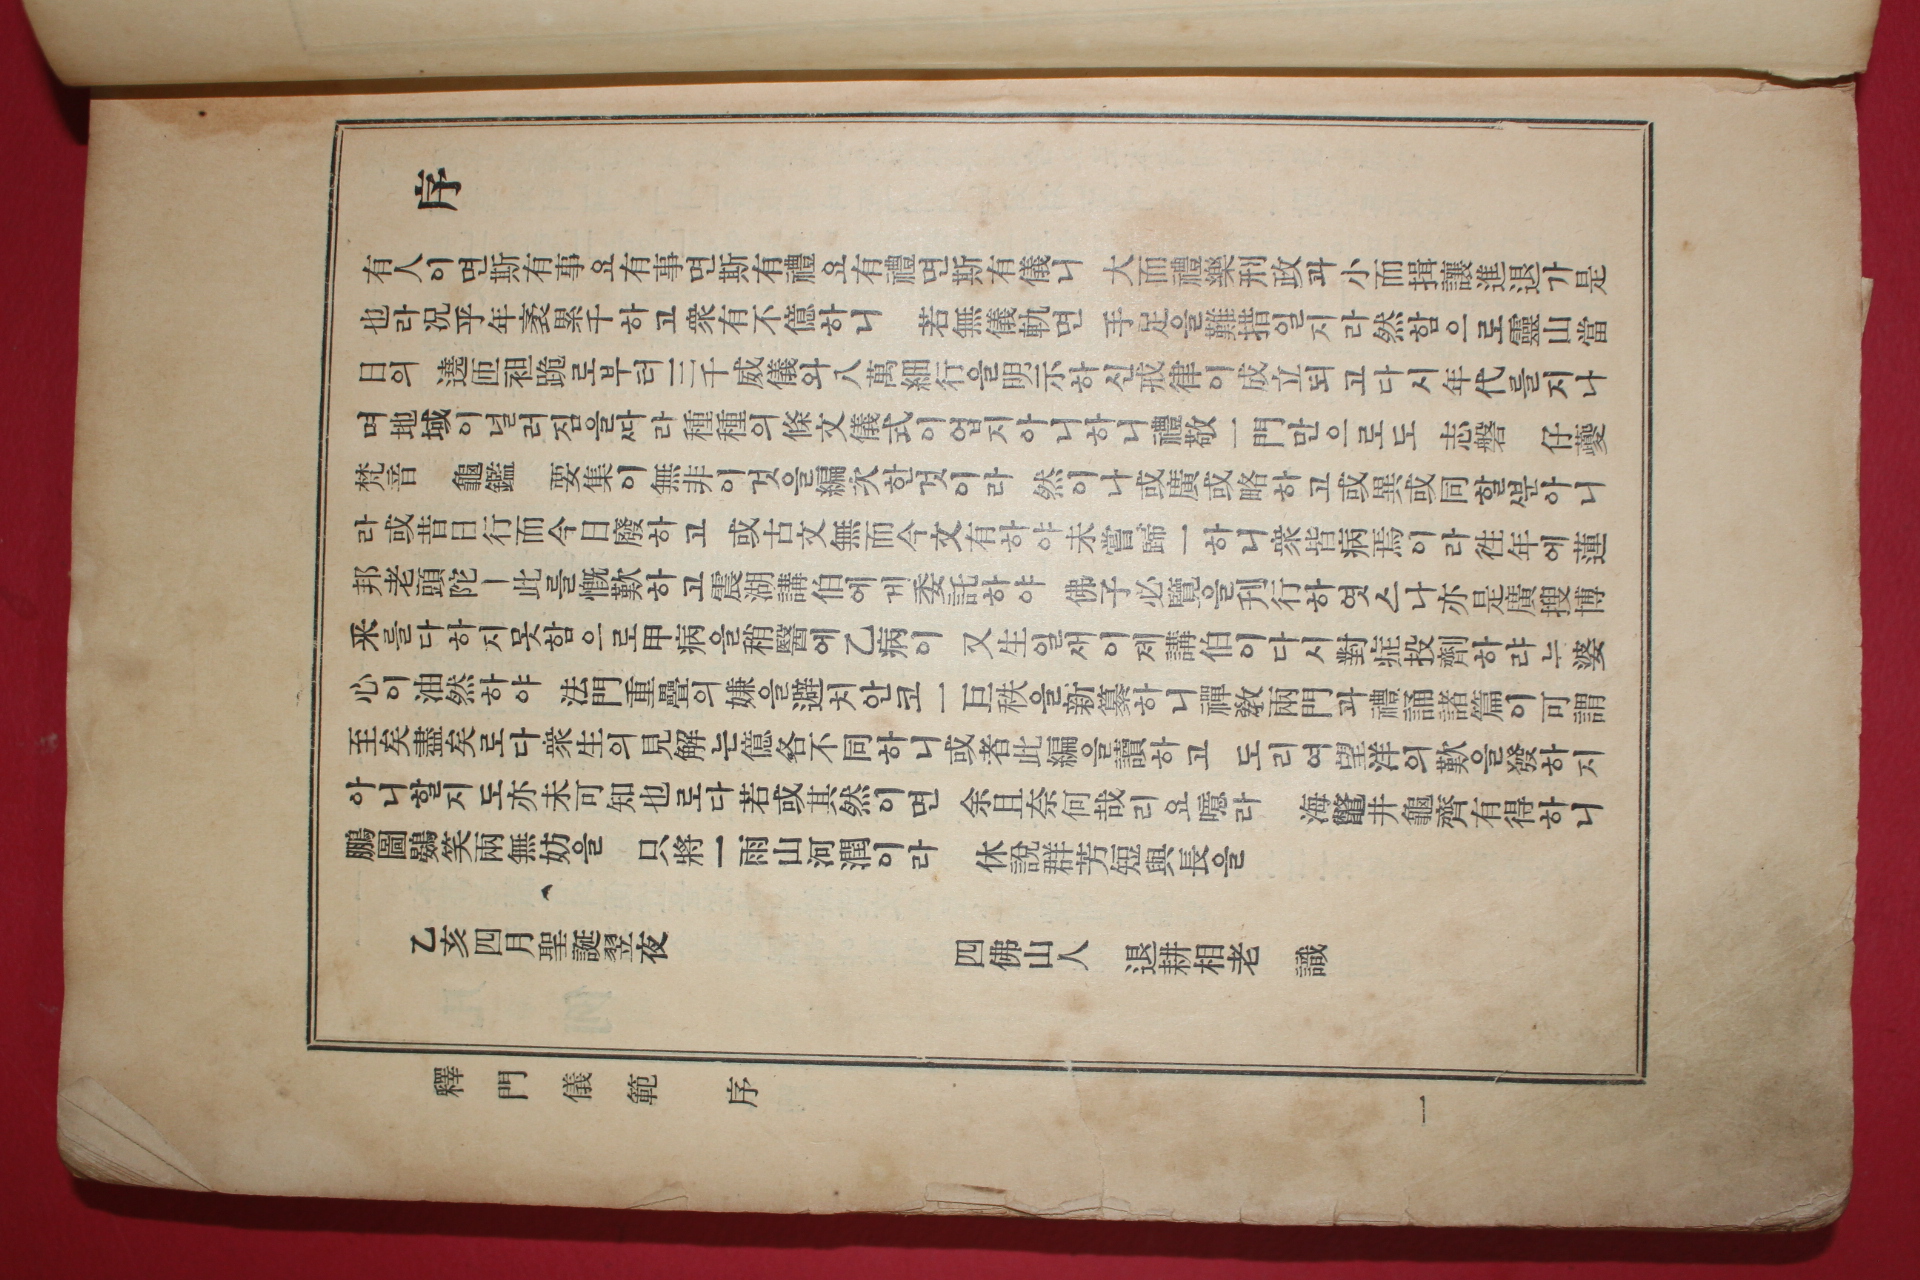 序
有人이면斯有事요有事면斯有禮요有禮면斯有儀니 大而禮樂刑政과小而揖讓進退가是
也라况乎年袤累千하고衆有不億하니 若無儀軌면 手足을難措일지라然함으로靈山當
日의 遶匝袒跪로부터三千威儀와八萬細行을明示하신戒律이成立되고다시年代를지나
며地域이널러짐을ᄯᅡ라種種의條文儀式이업지아니하니禮敬一門만으로도 志磐 仔夔
梵音 龜鑑 要集이無非이것을編次한것이라 然이나或廣或略하고或異或同할ᄲᅮᆫ아니
라或昔日行而今日廢하고 或古文無而今文有하야未嘗歸一하니衆皆病焉이라徃年에蓮
邦老頭陀ㅣ此를慨歎하고震湖講伯에게委託하야 佛子必覽을刋行하엿스나亦是廣搜博
釆를다하지못함으로甲病을稍醫에乙病이 又生일새이제講伯이다시對症投劑하랴느婆
心이油然하야 法門重疊의嫌을避치안코一巨秩을新纂하니禪敎兩門과禮誦諸篇이可謂
至矣盡矣로다衆生의見解는億各不同하니或者此編을讀하고 도리여望洋의歎을發하지
아니할지도亦未可知也로다若或其然이면 余且奈何哉리요噫라 海鼈井龜齊有得하니
鵬圖鷃笑兩無妨을 只將一雨山河潤이라 休說群芳短與長을
乙亥四月聖誕翌夜
四佛山人 退耕相老 識
釋門儀範 序
一